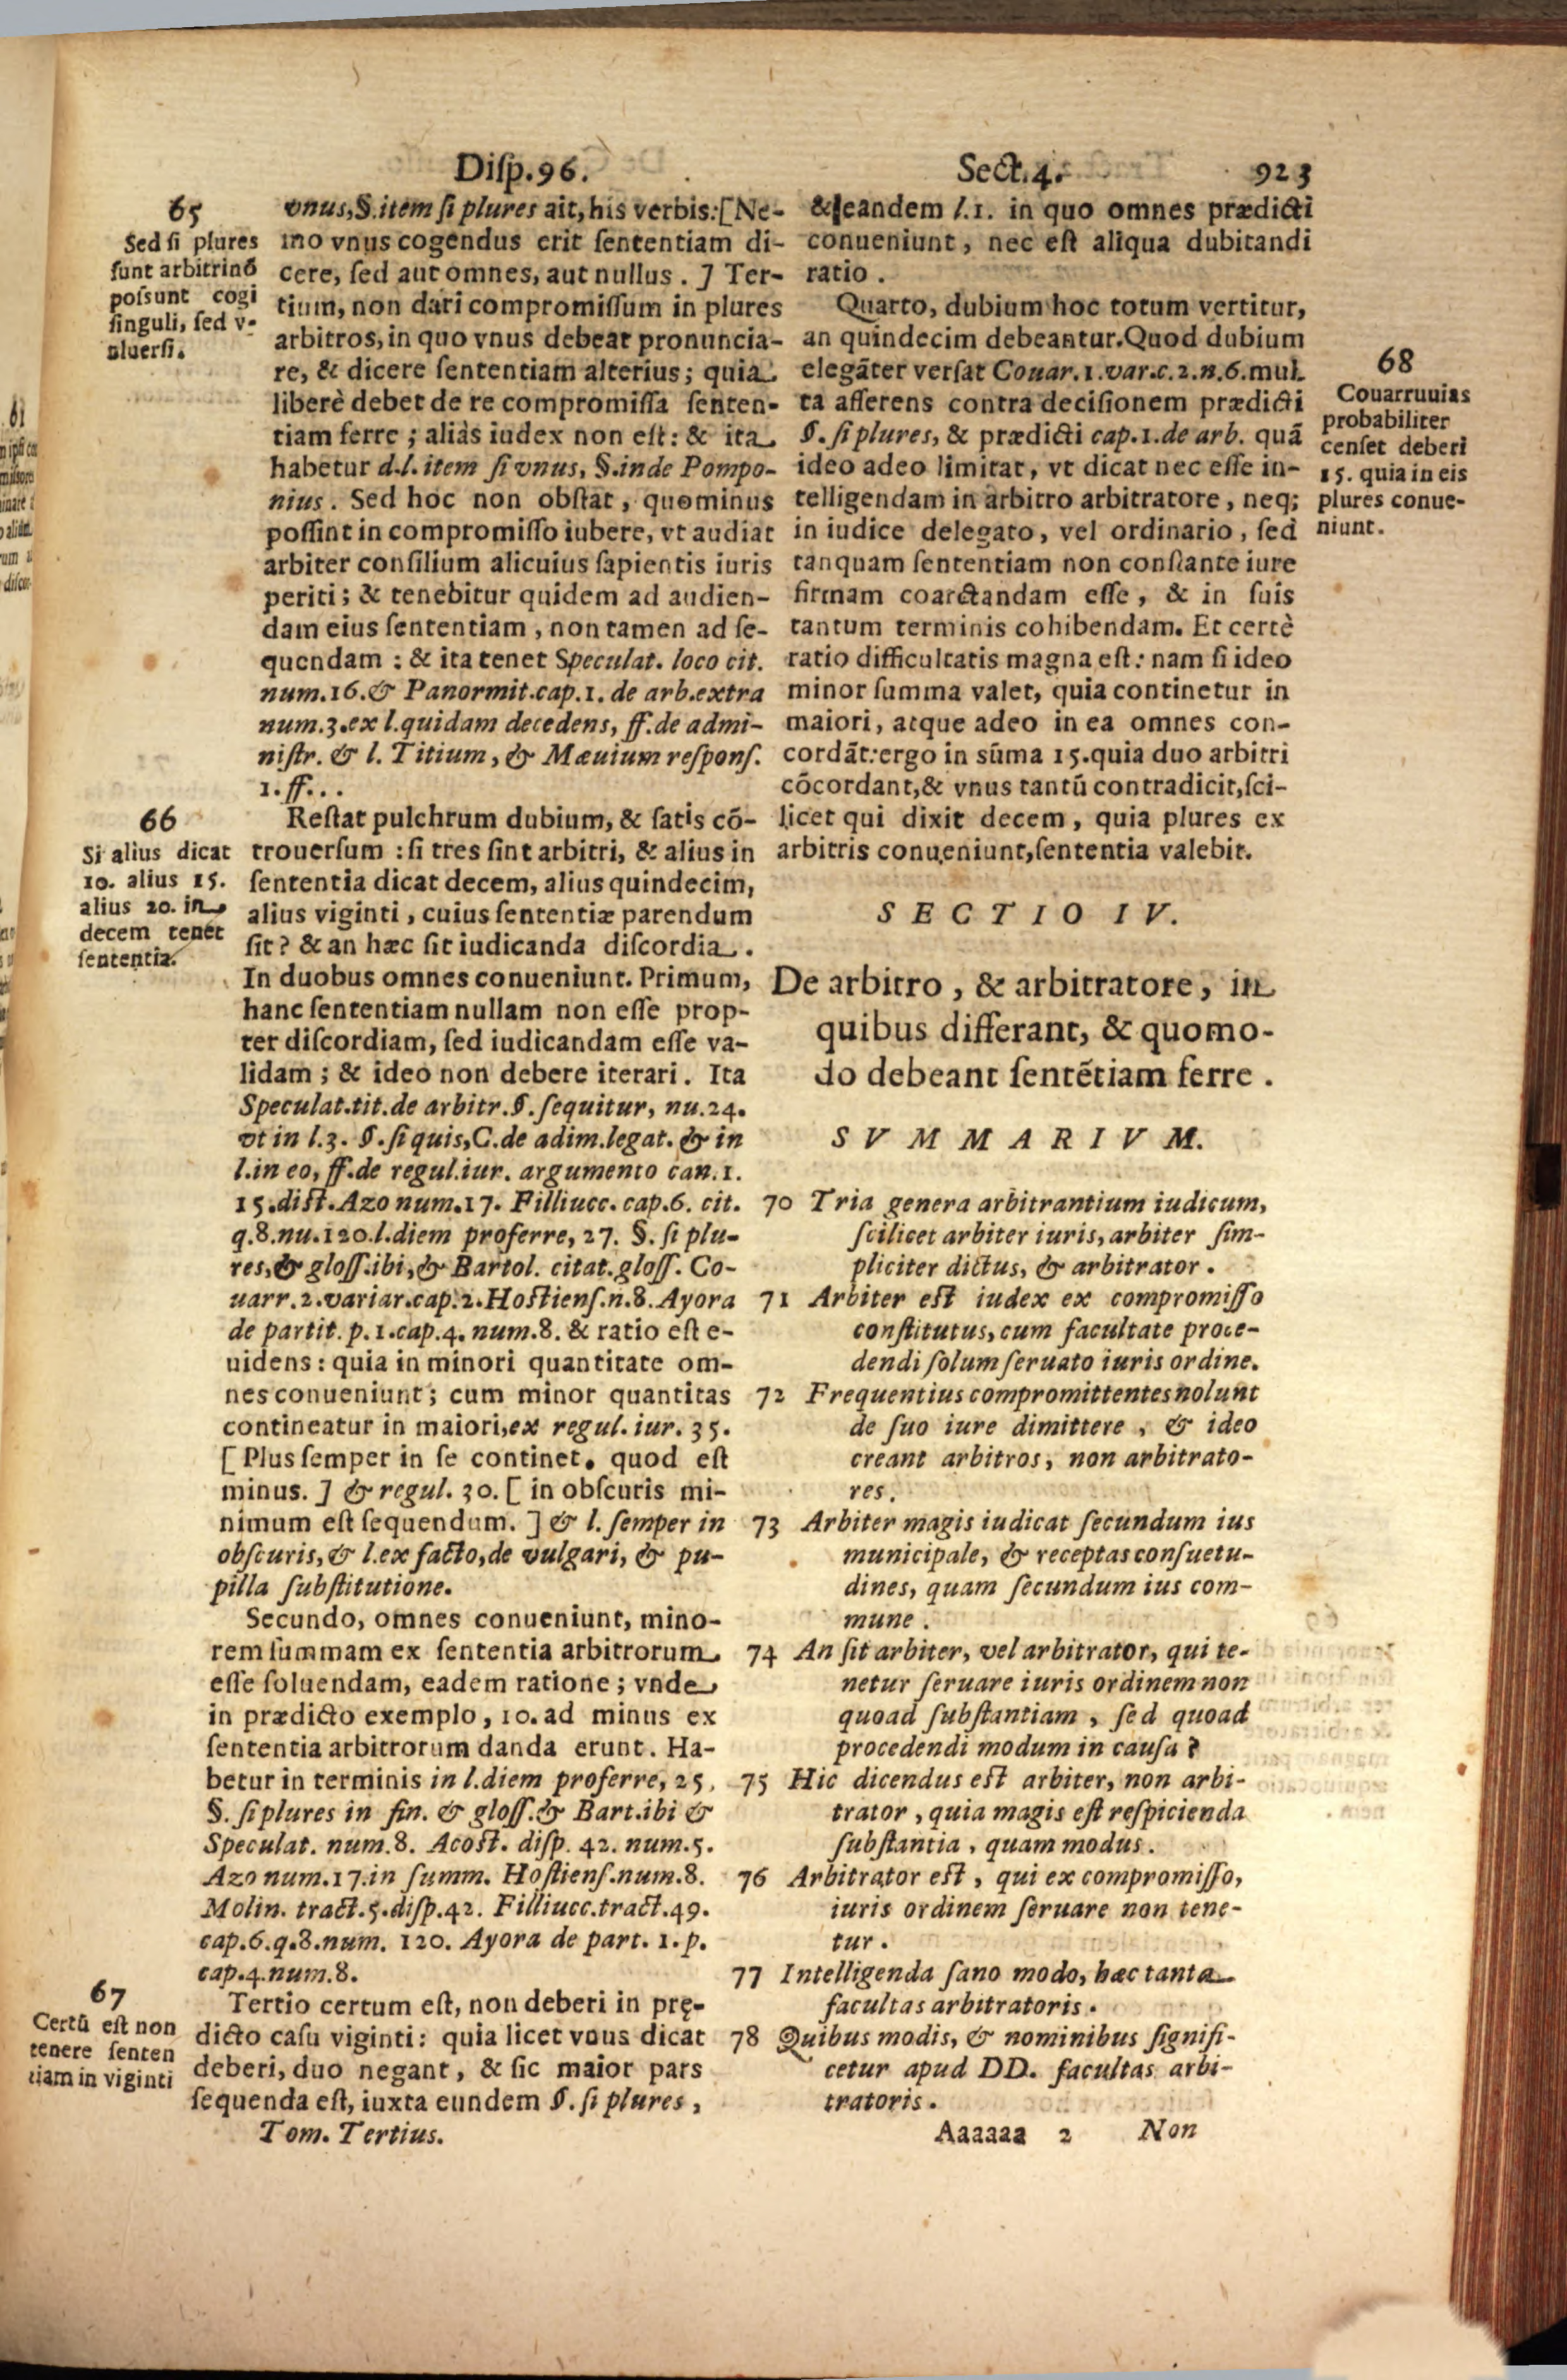 Disp.96.
Sect.4.
923
65
Sed si plures
sunt arbitri nõ
possunt cogi
singuli, sed v-
niuersi.
vnus,§.item si plures ait, his verbis:[Ne-
mo vnus cogendus erit sententiam di-
cere, sed aut omnes, aut nullus. ] Ter-
tium, non dari compromissum in plures
arbitros, in quo vnus debeat pronuncia-
re, & dicere sententiam alterius; quia
liberè debet de re compromissa senten-
tiam ferre; aliàs iudex non est: & ita
habetur d.l. item si vnus, §.inde Pompo-
nius. Sed hoc non obstat, quominus
possint in compromisso iubere, vt audiat
arbiter consilium alicuius sapientis iuris
periti; & tenebitur quidem ad audien-
dam eius sententiam, non tamen ad se-
quendam: & ita tenet Speculat. loco cit.
num.16.& Panormit.cap.1. de arb.extra
num.3.ex l.quidam decedens, ff.de admi-
nistr. & l. Titium, & Mæuium respons.
1.ff...
66
Si alius dicat
10. alius 15.
alius 20. in
decem tenet
sententia.
Restat pulchrum dubium, & satis cõ-
trouersum: si tres sint arbitri, & alius in
sententia dicat decem, alius quindecim,
alius viginti, cuius sententiæ parendum
sit? & an hæc sit iudicanda discordia.
In duobus omnes conueniunt. Primum,
hanc sententiam nullam non esse prop-
ter discordiam, sed iudicandam esse va-
lidam; & ideo non debere iterari. Ita
Speculat.tit.de arbitr.§.sequitur, nu.24.
vt in l.3. §.si quis,C.de adim.legat. & in
l.in eo, ff.de regul.iur. argumento can.1.
15.dist.Azo num.17. Filliucc. cap.6. cit.
q.8.nu.120.l.diem proferre, 27. §. si plu-
res,& gloss.ibi,& Bartol. citat.gloss. Co-
uarr.2.variar.cap.2.Hostiens.n.8.Ayora
de partit. p.1.cap.4. num.8. & ratio est e-
uidens: quia in minori quantitate om-
nes conueniunt; cum minor quantitas
contineatur in maiori,ex regul. iur. 35.
[ Plus semper in se continet. quod est
minus. ] & regul. 30. [ in obscuris mi-
nimum est sequendum. ] & l. semper in
obscuris, & l.ex facto,de vulgari, & pu-
pilla substitutione.
Secundo, omnes conueniunt, mino-
rem summam ex sententia arbitrorum
esse soluendam, eadem ratione; vnde
in prædicto exemplo, 10. ad minus ex
sententia arbitrorum danda erunt. Ha-
betur in terminis in l.diem proferre, 25.
§. si plures in fin. & gloss.& Bart.ibi &
Speculat. num.8. Acost. disp. 42. num.5.
Azo num.17.in summ. Hostiens.num.8.
Molin. tract.5.disp.42. Filliucc.tract.49.
cap.6.q.8.num. 120. Ayora de part. 1.p.
cap.4.num.8.
67
Certũ est non
tenere senten
tiam in viginti
Tertio certum est, non deberi in prę-
dicto casu viginti: quia licet vnus dicat
deberi, duo negant, & sic maior pars
sequenda est, iuxta eundem §. si plures,
Tom. Tertius.
& eandem l.1. in quo omnes prædicti
conueniunt, nec est aliqua dubitandi
ratio.
Quarto, dubium hoc totum vertitur,
an quindecim debeantur.Quod dubium
elegãter versat Couar.1.var.c.2.n.6.mul-
ta asserens contra decisionem prædicti
§. si plures, & prædicti cap.1.de arb. quã
ideo adeo limitat, vt dicat nec esse in-
telligendam in arbitro arbitratore, neq;
in iudice delegato, vel ordinario, sed
tanquam sententiam non constante iure
firmam coarctandam esse, & in suis
tantum terminis cohibendam. Et certè
ratio difficultatis magna est: nam si ideo
minor summa valet, quia continetur in
maiori, atque adeo in ea omnes con-
cordãt: ergo in sũma 15.quia duo arbitri
cõcordant,& vnus tantũ contradicit,sci-
licet qui dixit decem, quia plures ex
arbitris conueniunt,sententia valebit.
68
Couarruuias
probabiliter
censet deberi
15. quia in eis
plures conue-
niunt.
SECTIO IV.
De arbitro, & arbitratore, in
quibus differant, & quomo-
do debeant sentẽtiam ferre.
SVMMARIVM.
70 Tria genera arbitrantium iudicum,
scilicet arbiter iuris, arbiter sim-
pliciter dictus, & arbitrator.
71 Arbiter est iudex ex compromisso
constitutus, cum facultate proce-
dendi solum seruato iuris ordine.
72 Frequentius compromittentes nolunt
de suo iure dimittere, & ideo
creant arbitros, non arbitrato-
res.
73 Arbiter magis iudicat secundum ius
municipale, & receptas consuetu-
dines, quam secundum ius com-
mune.
74 An sit arbiter, vel arbitrator, qui te-
netur seruare iuris ordinem non
quoad substantiam, sed quoad
procedendi modum in causa?
75 Hic dicendus est arbiter, non arbi-
trator, quia magis est respicienda
substantia, quam modus.
76 Arbitrator est, qui ex compromisso,
iuris ordinem seruare non tene-
tur.
77 Intelligenda sano modo, hæc tanta
facultas arbitratoris.
78 Quibus modis, & nominibus signifi-
cetur apud DD. facultas arbi-
tratoris.
Aaaaaa 2
Non